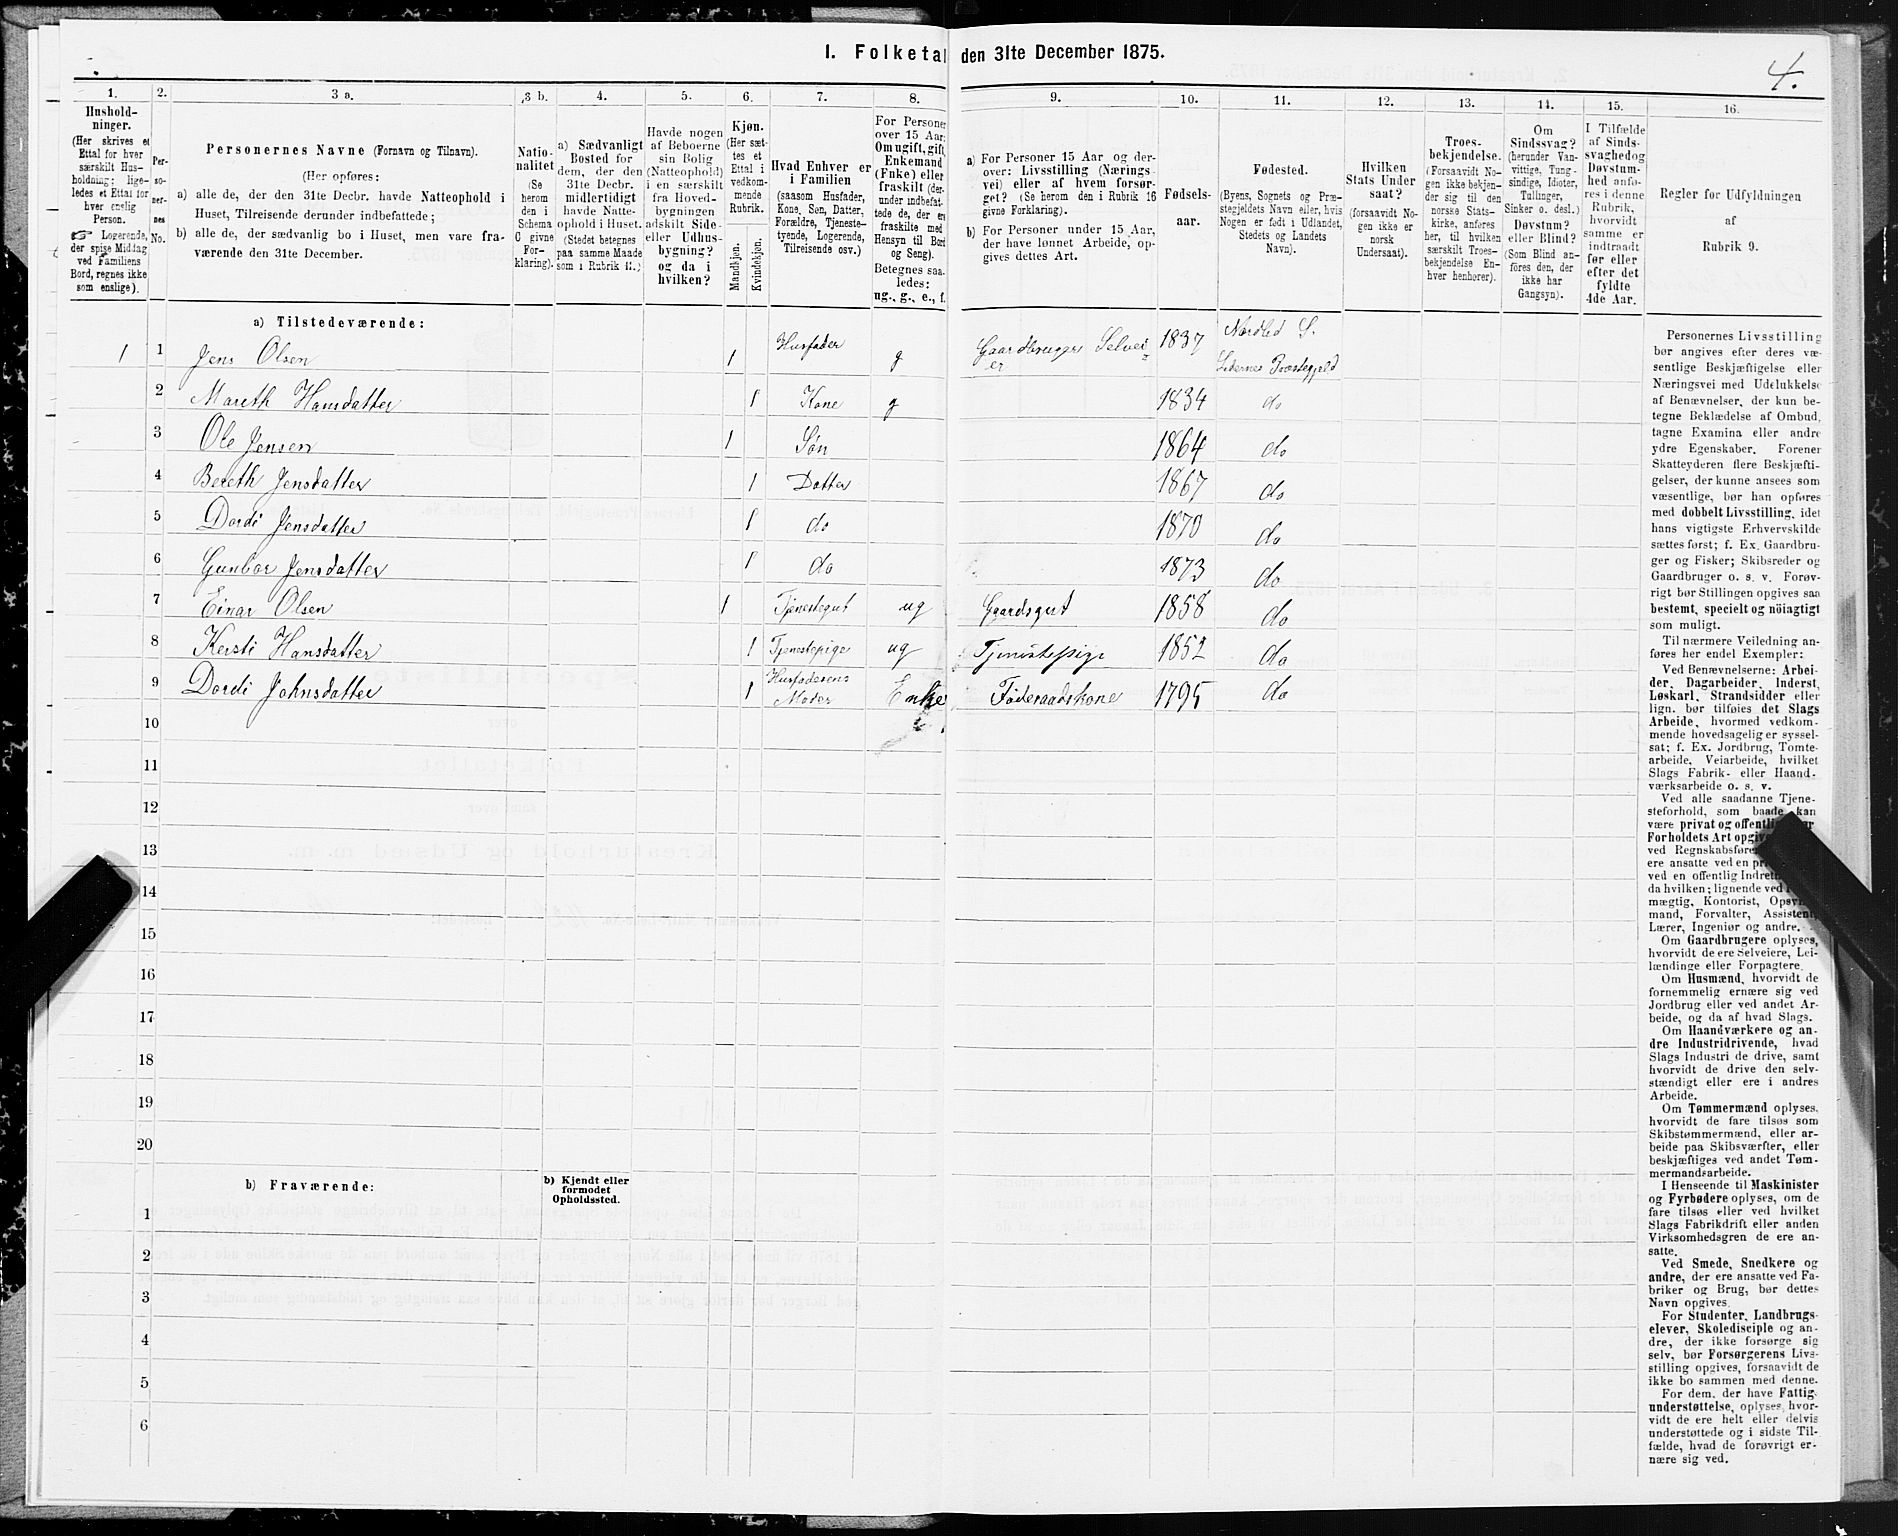 1. Folketal den 31te December 1875.
4.
1.
Hushold-
ninger.
(Her skrives et
Ettal for hver
særskilt Hus-
holdning; lige-
ledes et Ettal for
hver enslig
Person.
☞ Logerende,
der spise Middag
ved Familiens
Bord, regnes ikke
som enslige).
2.
Per-
so-
ner-
nes
No.
3 a.
Personernes Navne (Fornavn og Tilnavn).
(Her opføres:
a) alle de, der den 31te Decbr. havde Natteophold i
Huset, Tilreisende derunder indbefattede;
b) alle de, der sædvanlig bo i Huset, men vare fra-
værende den 31te December.
3 b.
Natio-
nalitet
(Se
herom
den i
Schema
C givne
For-
klaring).
4.
a) Sædvanligt
Bosted for
dem, der den
31te Decbr.
midlertidigt
havde Natte-
ophold i Huset.
(Stedet betegnes
paa samme Maade
som i Rubrik 11.)
5.
Havde nogen
af Beboerne
sin Bolig
(Natteophold)
i en særskilt
fra Hoved-
bygningen
adskilt Side-
eller Udhus-
bygning?
og da i
hvilken?
6.
Kjøn.
(Her sæt-
tes et
Ettal i
vedkom-
mende
Rubrik.
Mandkjøn.
Kvindekjøn.
7.
Hvad Enhver er
i Familien
(saasom Husfader,
Kone, Søn, Datter,
Forældre, Tjeneste-
tyende, Logerende,
Tilreisende osv.)
8.
For Personer
over 15 Aar:
Om ugift, gift,
Enkemand
(Enke) eller
fraskilt (der-
under indbefat-
tede de, der ere
fraskilte med
Hensyn til Bord
og Seng).
Betegnes saa-
ledes:
ug., g., e., f.
9.
a) For Personer 15 Aar og der-
over: Livsstilling (Nærings-
vei) eller af hvem forsør-
get? (Se herom den i Rubrik 16
givne Forklaring).
b) For Personer under 15 Aar,
der have lønnet Arbeide, op-
gives dettes Art.
10.
Fødsels-
aar.
11.
Fødested.
(Byens, Sognets og Præ-
stegjeldets Navn eller, hvis
Nogen er født i Udlandet,
Stedets og Landets
Navn).
12.
Hvilken
Stats Under
saat?
(forsaavidt No-
gen ikke er
norsk
Undersaat).
13.
Troes-
bekjendelse.
(Forsaavidt No-
gen ikke bekjen-
der sig til den
norske Stats-
kirke, anføres
her, til hvilken
særskilt Troes-
bekjendelse En-
hver henhører).
14.
Om
Sindssvag?
(herunder Van-
vittige, Tung-
sindige, Idioter,
Tullinger,
Sinker o. desl.)
Døvstum?
eller Blind?
(Som Blind an-
føres den, der
ikke har
Gangsyn).
15.
I Tilfælde
af Sinds-
svaghedog
Døvstum-
hed anfø-
res i denne
Rubrik,
hvorvidt
samme er
indtraadt
før eller
efter det
fyldte
4de Aar.
16.
Regler for Udfyldningen
af
Rubrik 9.
a) Tilstedeværende:
1 1 Jens Olsen 1 Husfader g Gaardbruger Selvei- er 1837 Nordlid S.
2 Mareth Hansdatter 1 Kone g 1834 do
3 Ole Jensen 1 Søn 1864 do
4 Bereth Jensdatter 1 Datter 1867 do
5 Dordi Jensdatter 1 do 1870 do
6 Gunbor Jensdatter 1 do 1873 do
7 Einar Olsen 1 Tjenestegut ug Gaardsgut 1858 do
8 Kersti Hansdatter 1 Tjenestepige ug Tjenestepige 1852 do
9 Dordi Johnsdatter 1 Husfaderens Moder Enke Føderaadskone 1795 do
10
11
12
13
14
15
16
17
18
19
20
b) Fraværende:
b) Kjendt eller
formodet
Opholdssted.
1
2
3
4
5
6
Personernes Livsstilling
bør angives efter deres væ-
sentlige Beskjæftigelse eller
Næringsvei med Udelukkelse
af Benævnelser, der kun be-
tegne Beklædelse af Ombud,
tagne Examina eller andre
ydre Egenskaber. Forener
Skatteyderen flere Beskjæfti-
gelser, der kunne ansees som
væsentlige, bør han opføres
med dobbelt Livsstilling, idet
hans vigtigste Erhvervskilde
sættes først; f. Ex. Gaardbru-
ger og Fisker; Skibsreder og
Gaardbruger o. s. v. Forøv-
rigt bør Stillingen opgives saa
bestemt, specielt og nöiagtigt
som muligt.
Til nærmere Veiledning an-
føres her endel Exempler:
Ved Benævnelserne: Arbei-
der, Dagarbeider, Inderst,
Løskarl, Strandsidder eller
lign. bør tilføies det Slags
Arbeide, hvormed vedkom-
mende hovedsagelig er syssel-
sat; f. Ex. Jordbrug, Tomte-
arbeide, Veiarbeide, hvilket
Slags Fabrik- eller Haand-
værksarbeide o. s. v.
Ved alle saadanne Tjene-
steforhold, som baade kan
være privat og offentlig, bør
Forholdets Art opgives
ved Regnskabsføre
ere ansatte ved en pri
ved en offentlig Indret
da hvilken; lignende ved
mægtig, Kontorist, Opsyns-
mand, Forvalter, Assistent,
Lærer, Ingeniør og andre.
Om Gaardbrugere oplyses,
hvorvidt de ere Selveiere, Lei-
lændinge eller Forpagtere.
Om Husmænd, hvorvidt de
fornemmelig ernære sig ved
Jordbrug eller ved andet Ar-
beide, og da af hvad Slags.
Om Haandværkere og an-
dre Industridrivende, hvad
Slags Industri de drive, samt
hvorvidt de drive den selv-
stændigt eller ere i andres
Arbeide.
Om Tømmermænd oplyses,
hvorvidt de fare tilsøs som
Skibstømmermænd, eller ar-
beide paa Skibsværfter, eller
beskjæftiges ved andet Tøm-
mermandsarbeide.
I Henseende til Maskinister
og Fyrbødere oplyses, om de
fare tilsøs eller ved hvilket
Slags Fabrikdrift eller anden
Virksomhedsgren de ere an-
satte.
Ved Smede, Snedkere og
andre, der ere ansatte ved Fa-
briker og Brug, bør dettes
Navn opgives.
For Studenter, Landbrugs-
elever, Skoledisciple og an-
dre, der ikke forsørge sig
selv, bør Forsørgerens Livs-
stilling opgives, forsaavidt de
ikke bo sammen med denne.
For dem, der have Fattig-
understøttelse, oplyses, hvor-
vidt de ere helt eller delvis
understøttede og i sidste Til-
fælde, hvad de forøvrigt er-
nære sig ved.